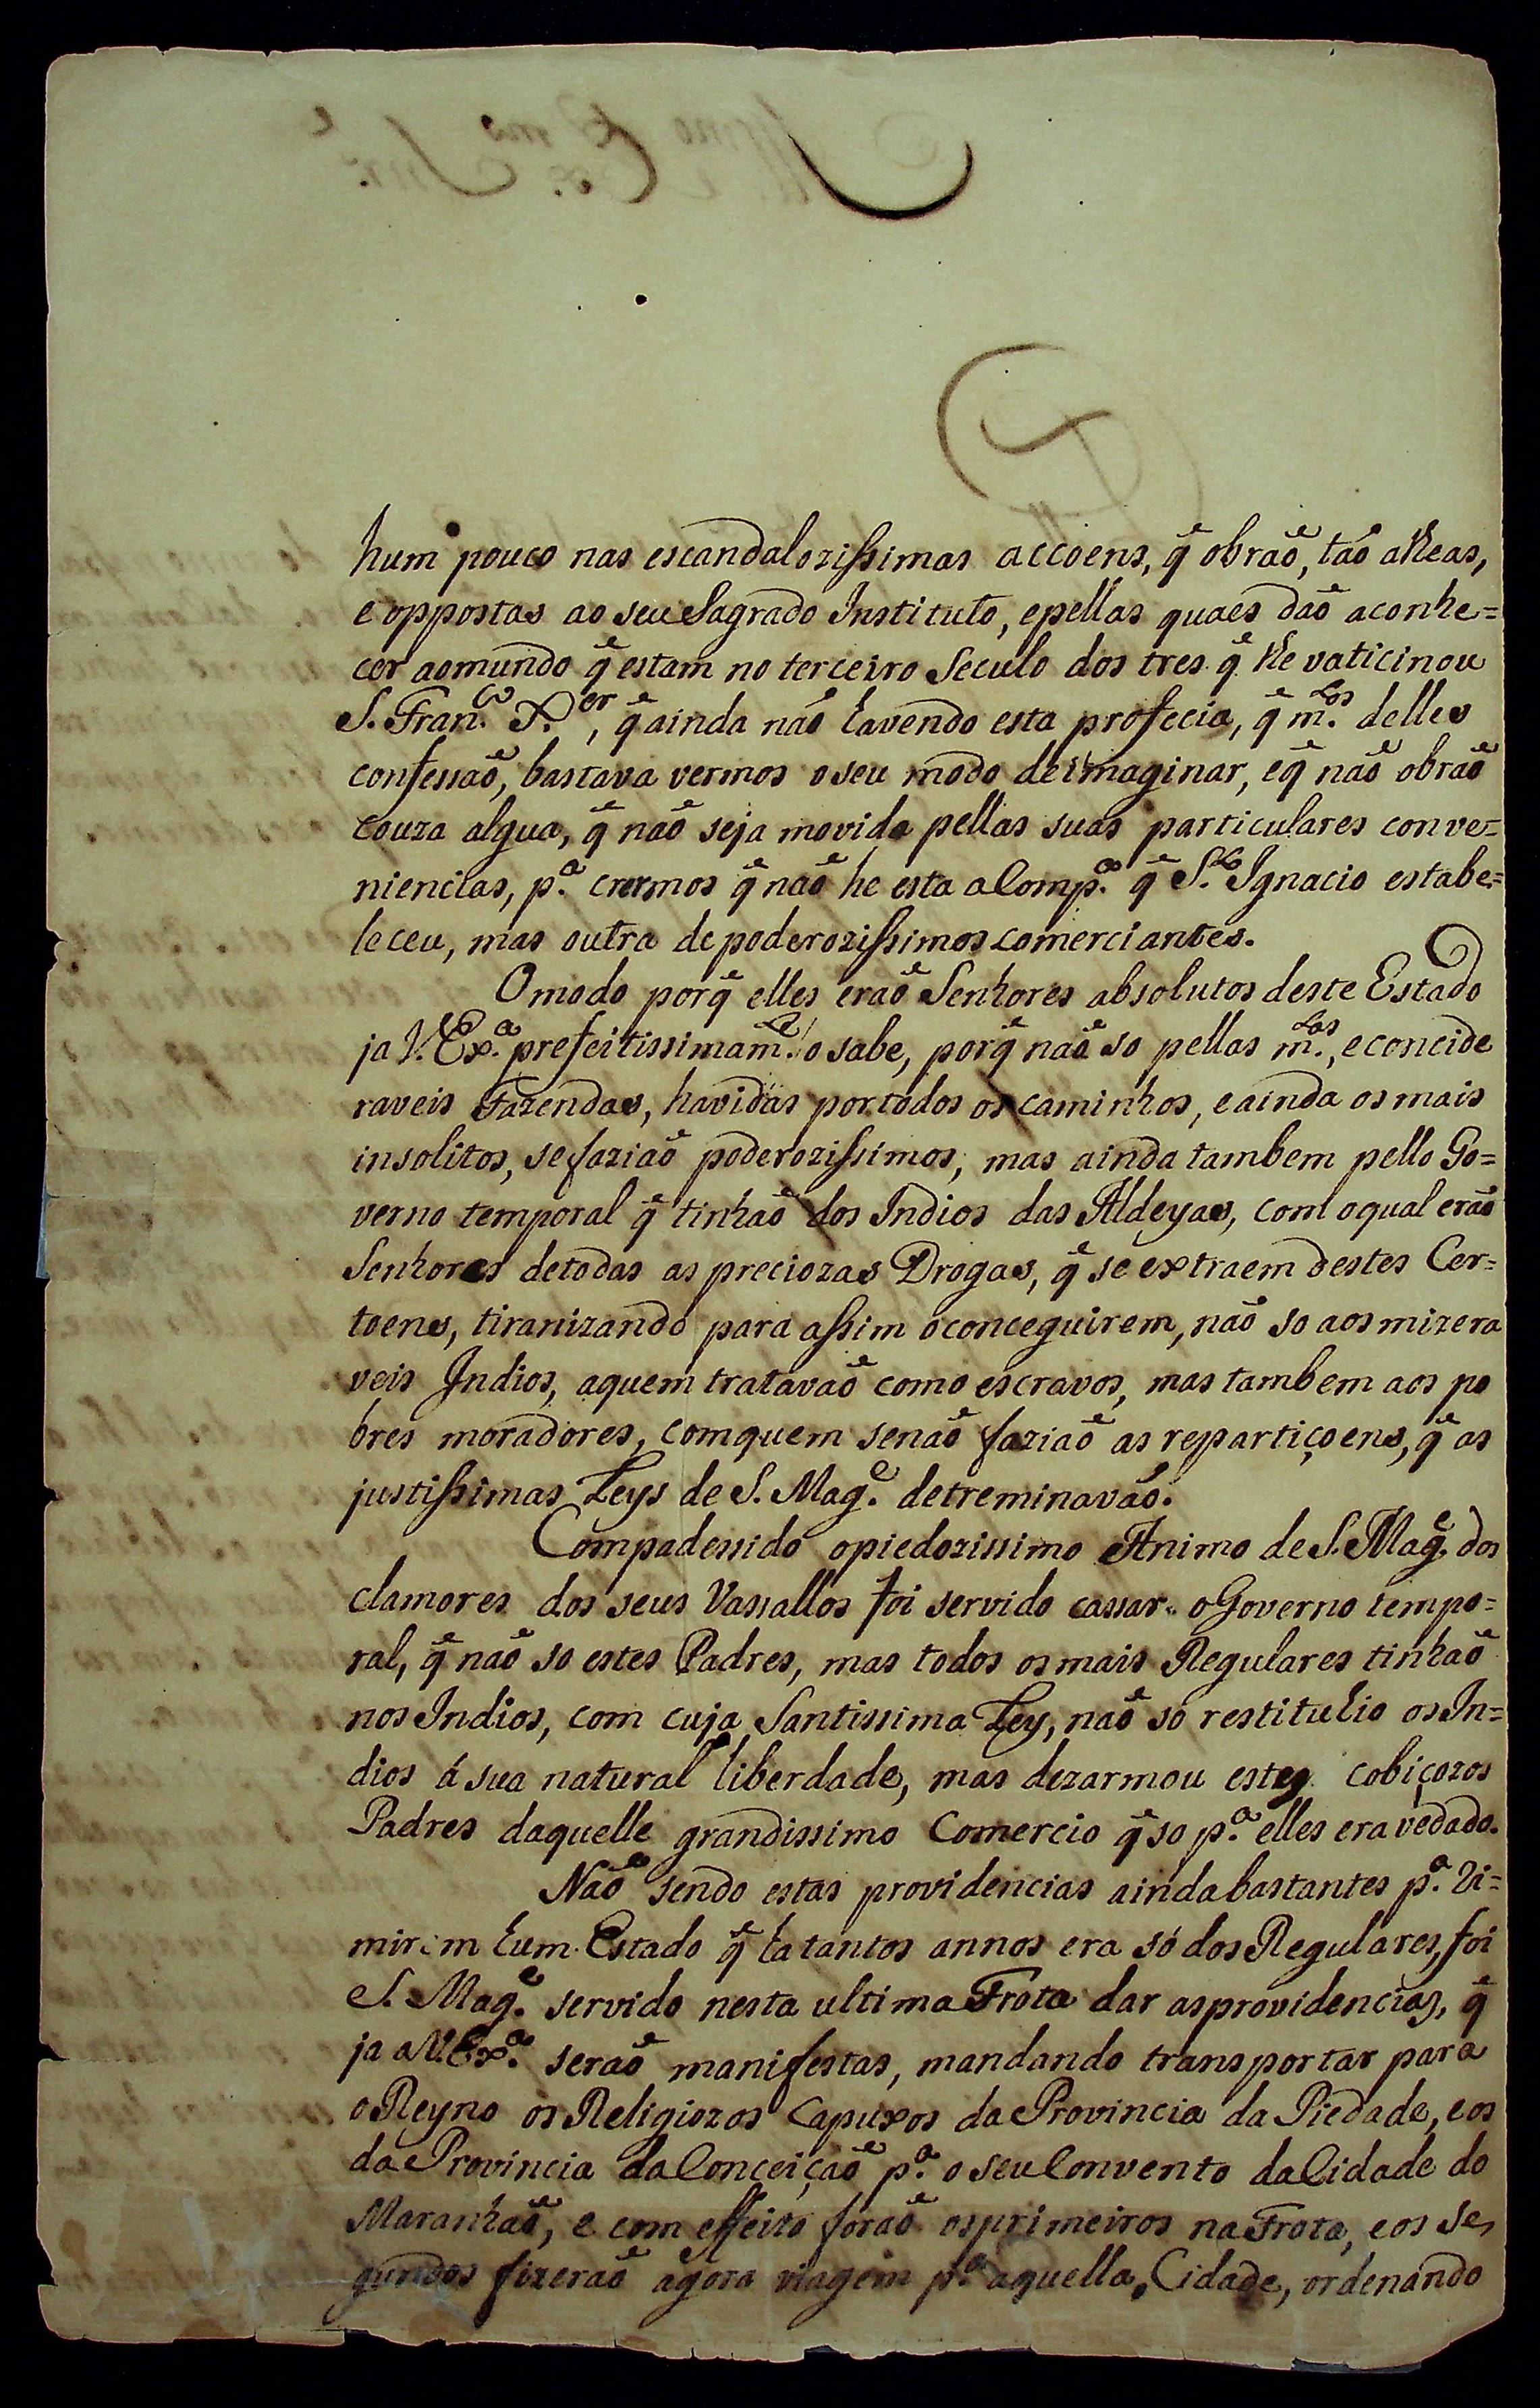 hum pouco nas escandalozissimas accoens, q̃ obraõ, taõ alheas,
e oppostas ao seu Sagrado Instituto, epellas quaes daõ aconhe=
cer aomundo q̃ estam no terceiro Seculo dos tres q̃ lhe vaticinou
S. Fran.co X.er, q̃ ainda naõ havendo esta profecia, q̃ m.tos delles
confessaõ, bastava vermos oseu modo deimaginar, eq̃ naõ obraõ
couza algua, q̃ naõ seja movida pellas suas particulares conve=
niencias, p.a crermos q̃ naõ he esta aComp.a q̃ S.to Ignacio estabe=
leceu, mas outra depoderozissimos comerciantes.
Omodo porq̃ elles eraõ Senhores absolutos deste Estado
ja V. Ex.a prefeitissimam.te o sabe, porq̃ naõ so pellas m.tas, econcide
raveis Fazendas, havidas portodos os caminhos, eainda osmais
insolitos, sefaziaõ poderozissimos, mas ainda tambem pello Go=
verno temporal q̃ tinhaõ dos Indios das Aldeyas, com oqual eraõ
Senhores detodas as preciozas Drogas, q̃ se extraem destes Cer=
toens, tiranizando para assim oconceguirem, naõ so aosmizera
veis Indios, aquem tratavaõ como escravos, mas tambem aos po
bres moradores, comquem senaõ faziaõ as repartiçoens, q̃ as
justissimas Leys de S. Mag.e detreminavaõ.
Compadessido opiedozissimo Animo deS. Mag.e dos
clamores dos seus Vassallos foi servido cassar oGoverno tempo=
ral, q̃ naõ so estes Padres, mas todos osmais Regulares tinhaõ
nosIndios, com cuja Santissima Ley, naõ só restituhio osIn=
dios á sua natural liberdade, mas dezarmou estes cobiçozos
Padres daquelle grandissimo Comercio q̃ so p.a elles era vedado.
Naõ sendo estas providencias aindabastantes p.a Vi=
mirem hum Estado q̃ ha tantos annos era só dosRegulares, foi
S. Mag.e servido nesta ultima Frota dar asprovidencias, q̃
ja aV.Ex.a seraõ manifestas, mandando transportar para
oReyno osReligiozos Capuxos daProvincia da Piedade, eos
daProvincia daConceiçaõ p.a o seuConvento daCidade do
Maranhaõ, e com effeito foraõ osprimeiros naFrota, eos Se,
gundos fizeraõ agora viagem p.a aquella Cidade, ordenando